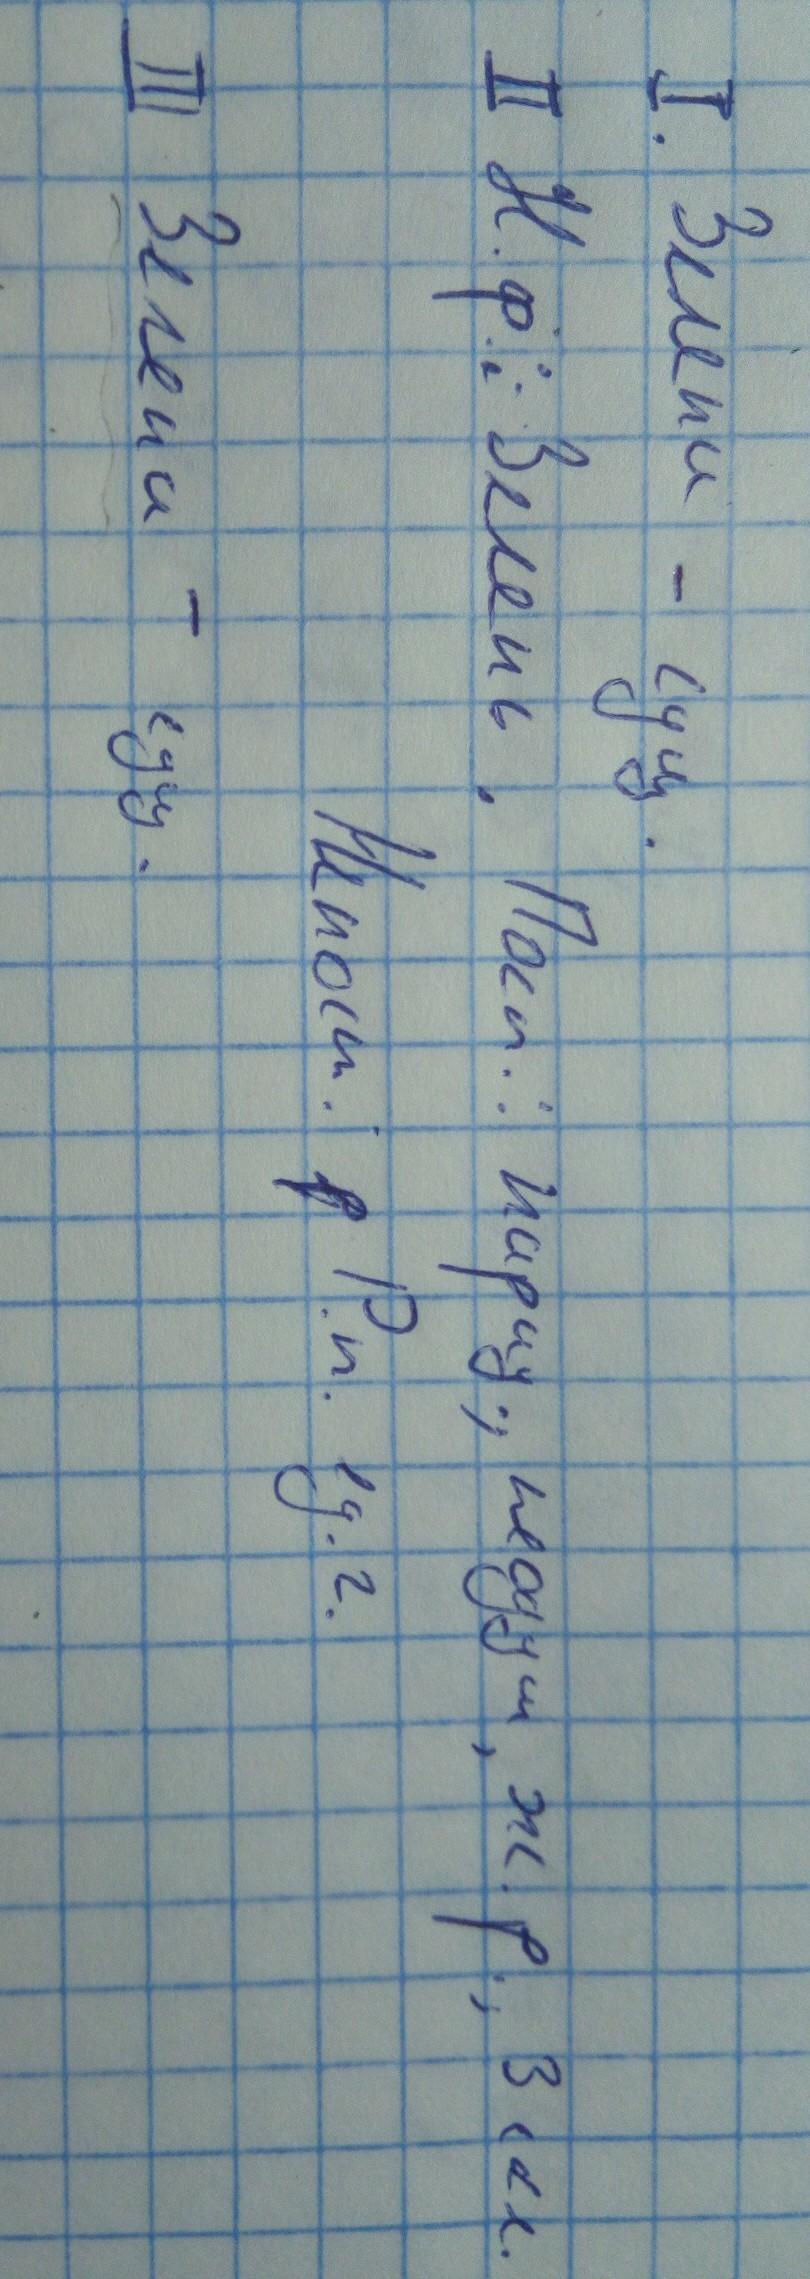 I. Зелени - сущ.
II Н.ф.: Зелень. Пост.: нариц., неодуш, ж.р., 3 скл.
Непост.: Р.п. ед.ч.
III Зелени - сущ.